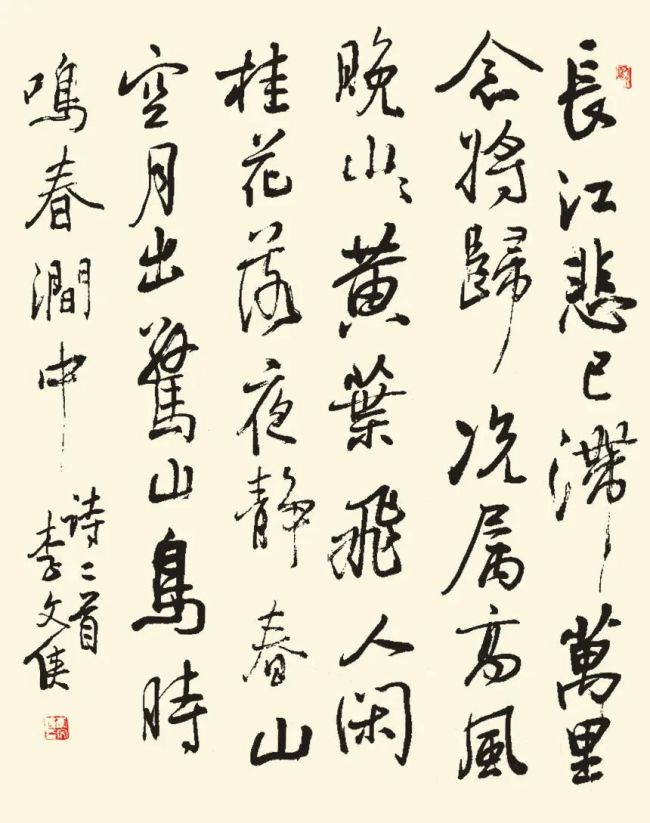 長江悲已滯萬里
念將歸況属高風
晚山山黄葉飛人闲
桂花落夜静春山
空月出驚山鳥時
鳴春澗中
诗二首
李文侠